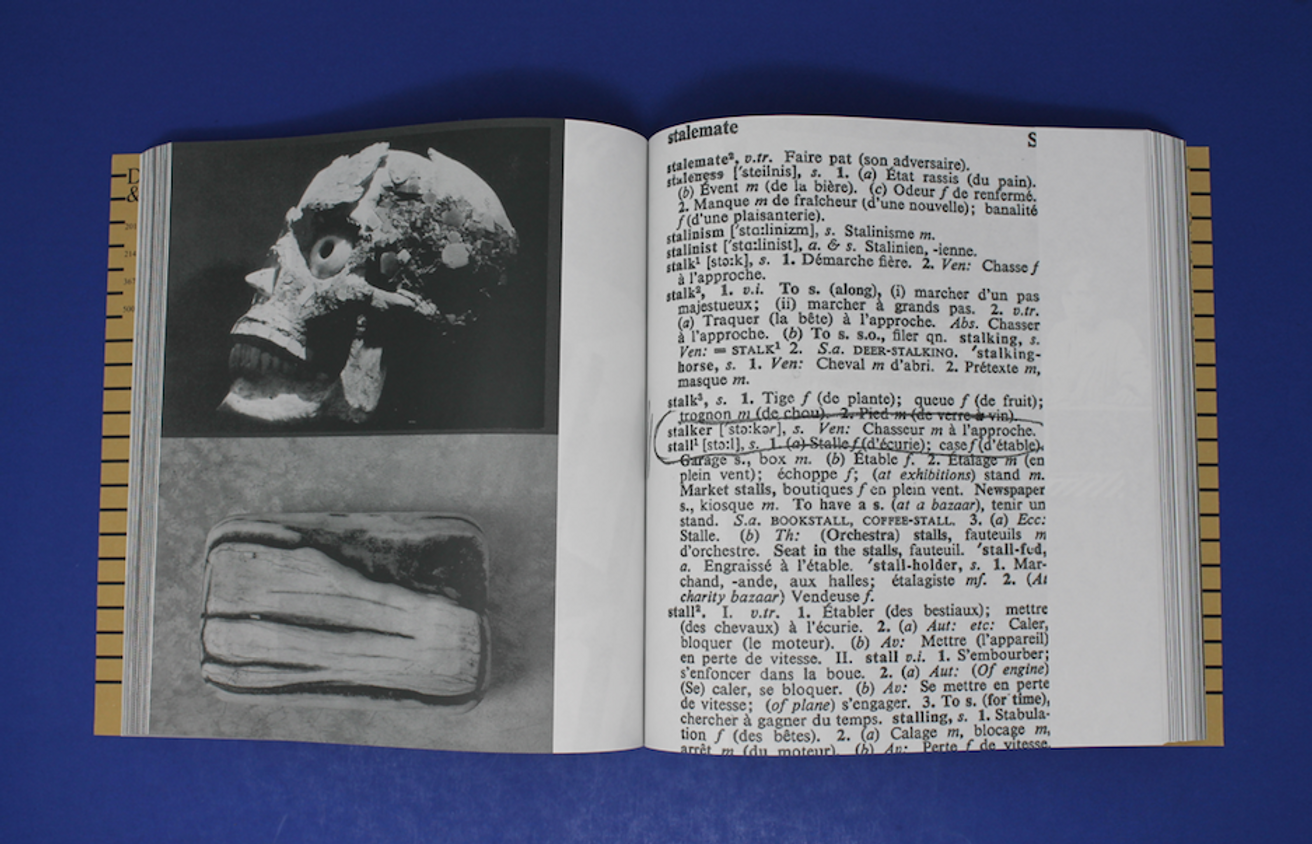 D
&
201
214
367
500
stalemate S
stalemate², v.tr. Faire pat (son adversaire).
staleness ['steilnis], s. 1. (a) État rassis (du pain).
(b) Évent m (de la bière). (c) Odeur f de renfermé.
2. Manque m de fraîcheur (d'une nouvelle); banalité
f (d'une plaisanterie).
stalinism ['stɑ:linizm], s. Stalinisme m.
stalinist ['stɑ:linist], a. & s. Stalinien, -ienne.
stalk¹ [stɔ:k], s. 1. Démarche fière. 2. Ven: Chasse f
à l'approche.
stalk², 1. v.i. To s. (along), (i) marcher d'un pas
majestueux; (ii) marcher à grands pas. 2. v.tr.
(a) Traquer (la bête) à l'approche. Abs. Chasser
à l'approche. (b) To s. s.o., filer qn. stalking, s.
Ven: = STALK¹ 2. S.a. DEER-STALKING. 'stalking-
horse, s. 1. Ven: Cheval m d'abri. 2. Prétexte m,
masque m.
stalk³, s. 1. Tige f (de plante); queue f (de fruit);
trognon m (de chou). 2. Pied m (de verre à vin).
stalker ['stɔ:kər], s. Ven: Chasseur m à l'approche.
stall¹ [stɔ:l], s. 1. (a) Stalle f (d'écurie); case f (d'étable).
Garage s., box m. (b) Étable f. 2. Étalage m (en
plein vent); échoppe f; (at exhibitions) stand m.
Market stalls, boutiques f en plein vent. Newspaper
s., kiosque m. To have a s. (at a bazaar), tenir un
stand. S.a. BOOKSTALL, COFFEE-STALL. 3. (a) Ecc:
Stalle. (b) Th: (Orchestra) stalls, fauteuils m
d'orchestre. Seat in the stalls, fauteuil. 'stall-fed,
a. Engraissé à l'étable. 'stall-holder, s. 1. Mar-
chand, -ande, aux halles; étalagiste mf. 2. (At
charity bazaar) Vendeuse f.
stall². I. v.tr. 1. Établer (des bestiaux); mettre
(des chevaux) à l'écurie. 2. (a) Aut: etc: Caler,
bloquer (le moteur). (b) Av: Mettre (l'appareil)
en perte de vitesse. II. stall v.i. 1. S'embourber;
s'enfoncer dans la boue. 2. (a) Aut: (Of engine)
(Se) caler, se bloquer. (b) Av: Se mettre en perte
de vitesse; (of plane) s'engager. 3. To s. (for time),
chercher à gagner du temps. stalling, s. 1. Stabula-
tion f (des bêtes). 2. (a) Calage m, blocage m,
arrêt m (du moteur). (b) Av: Perte f de vitesse.